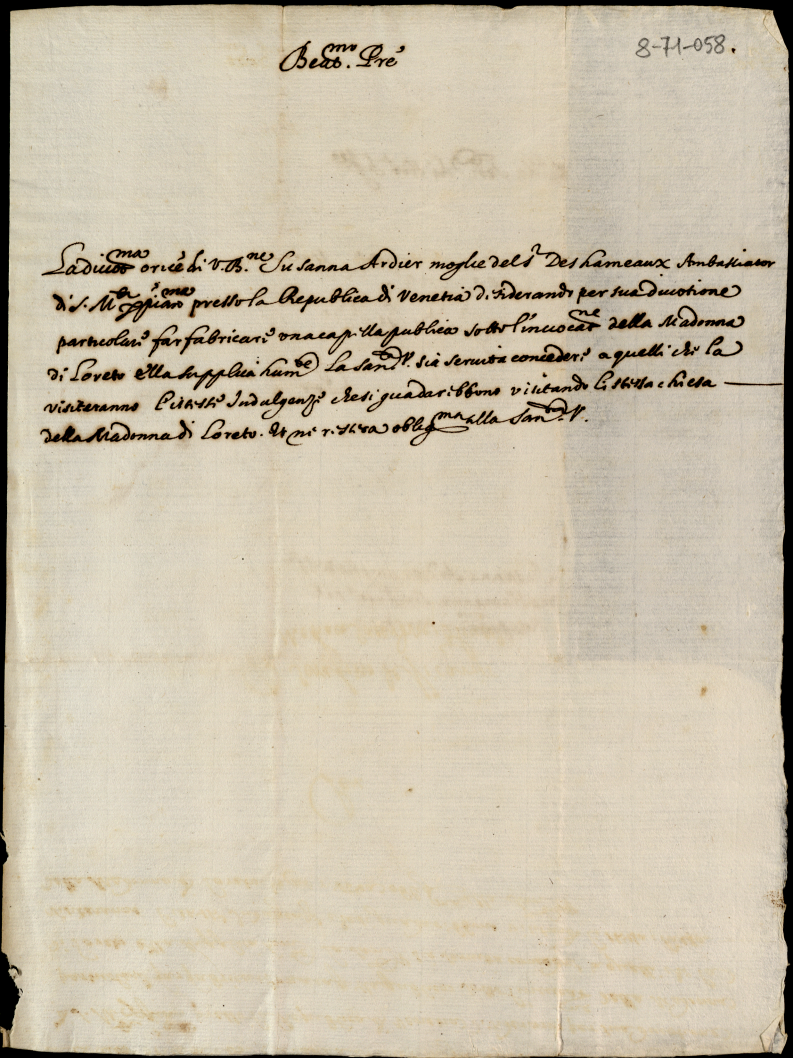 8-71-058.
Beat.mo Pre
La diuot.ma orice di V. B.ne Susanna Ardier moglie del S.r Des hameaux Ambassiator
di S. M.tà Xpianma presso la Republica di Venetia desiderando per sua diuotione
particolare far fabricare una capella publica sotto l'inuocat.ne della Madonna
di Loreto ella supplica hum.te La San.tà V. sia seruita concedere a quelli che la
visiteranno l'istesse Indulgenze che si guadarebbono visitando l'istessa chiesa
della Madonna di Loreto. Et ne restera oblig.ma alla San.tà V.